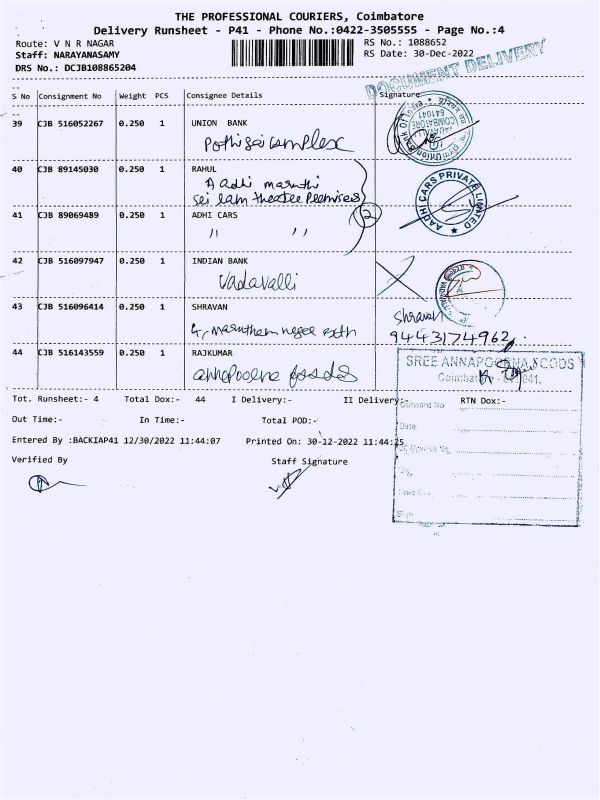 THE PROFESSIONAL COURIERS, Coimbatore
Delivery Runsheet - P41 - Phone No.:0422-3505555 - Page No.:4
Route: V N R NAGAR RS No.: 1088652
Staff: NARAYANASAMY RS Date: 30-Dec-2022
DRS No.: DCJB108865204
DOCUMENT DELIVERY
S No Consignment No Weight PCS Consignee Details Signature
39 CJB 516052267 0.250 1 UNION BANK
Pothi sai complex
Union Bank Of India
COIMBATORE
641041
40 CJB 89145030 0.250 1 RAHUL
Aadhi maruthi
sri ram theatre premises
AADHI CARS PRIVATE LIMITED
41 CJB 89069489 0.250 1 ADHI CARS
11 11
2
42 CJB 516097947 0.250 1 INDIAN BANK
Vadavalli
43 CJB 516096414 0.250 1 SHRAVAN
Shravan
9443174962
44 CJB 516143559 0.250 1 RAJKUMAR
annapoorna foods
SREE ANNAPOORNA FOODS
Coimbatore - 641 041.
Tot. Runsheet:- 4 Total Dox:- 44 I Delivery:- II Delivery:- RTN Dox:-
Inward No
Out Time:- In Time:- Total POD:-
Date
Entered By :BACKIAP41 12/30/2022 11:44:07 Printed On: 30-12-2022 11:44:25
Verified By Staff Signature
Sign